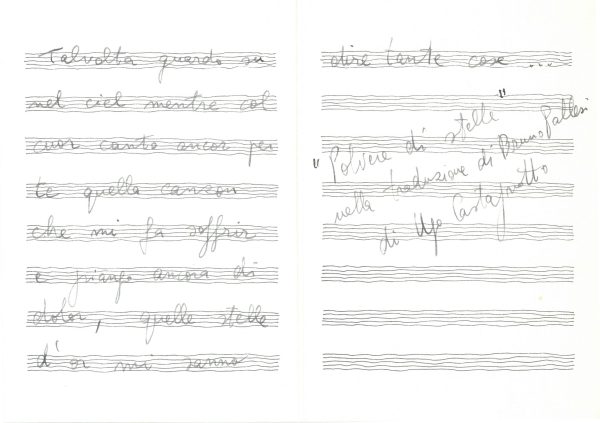 Talvolta guardo su
nel ciel mentre col
cuor canto ancor per
te quella canzon
che mi fa soffrir
e piango ancora di
dolor, quelle stelle
d'or mi sanno
dire tante cose ...
"Polvere di stelle"
nella traduzione di Bruno Pallesi
di Ugo